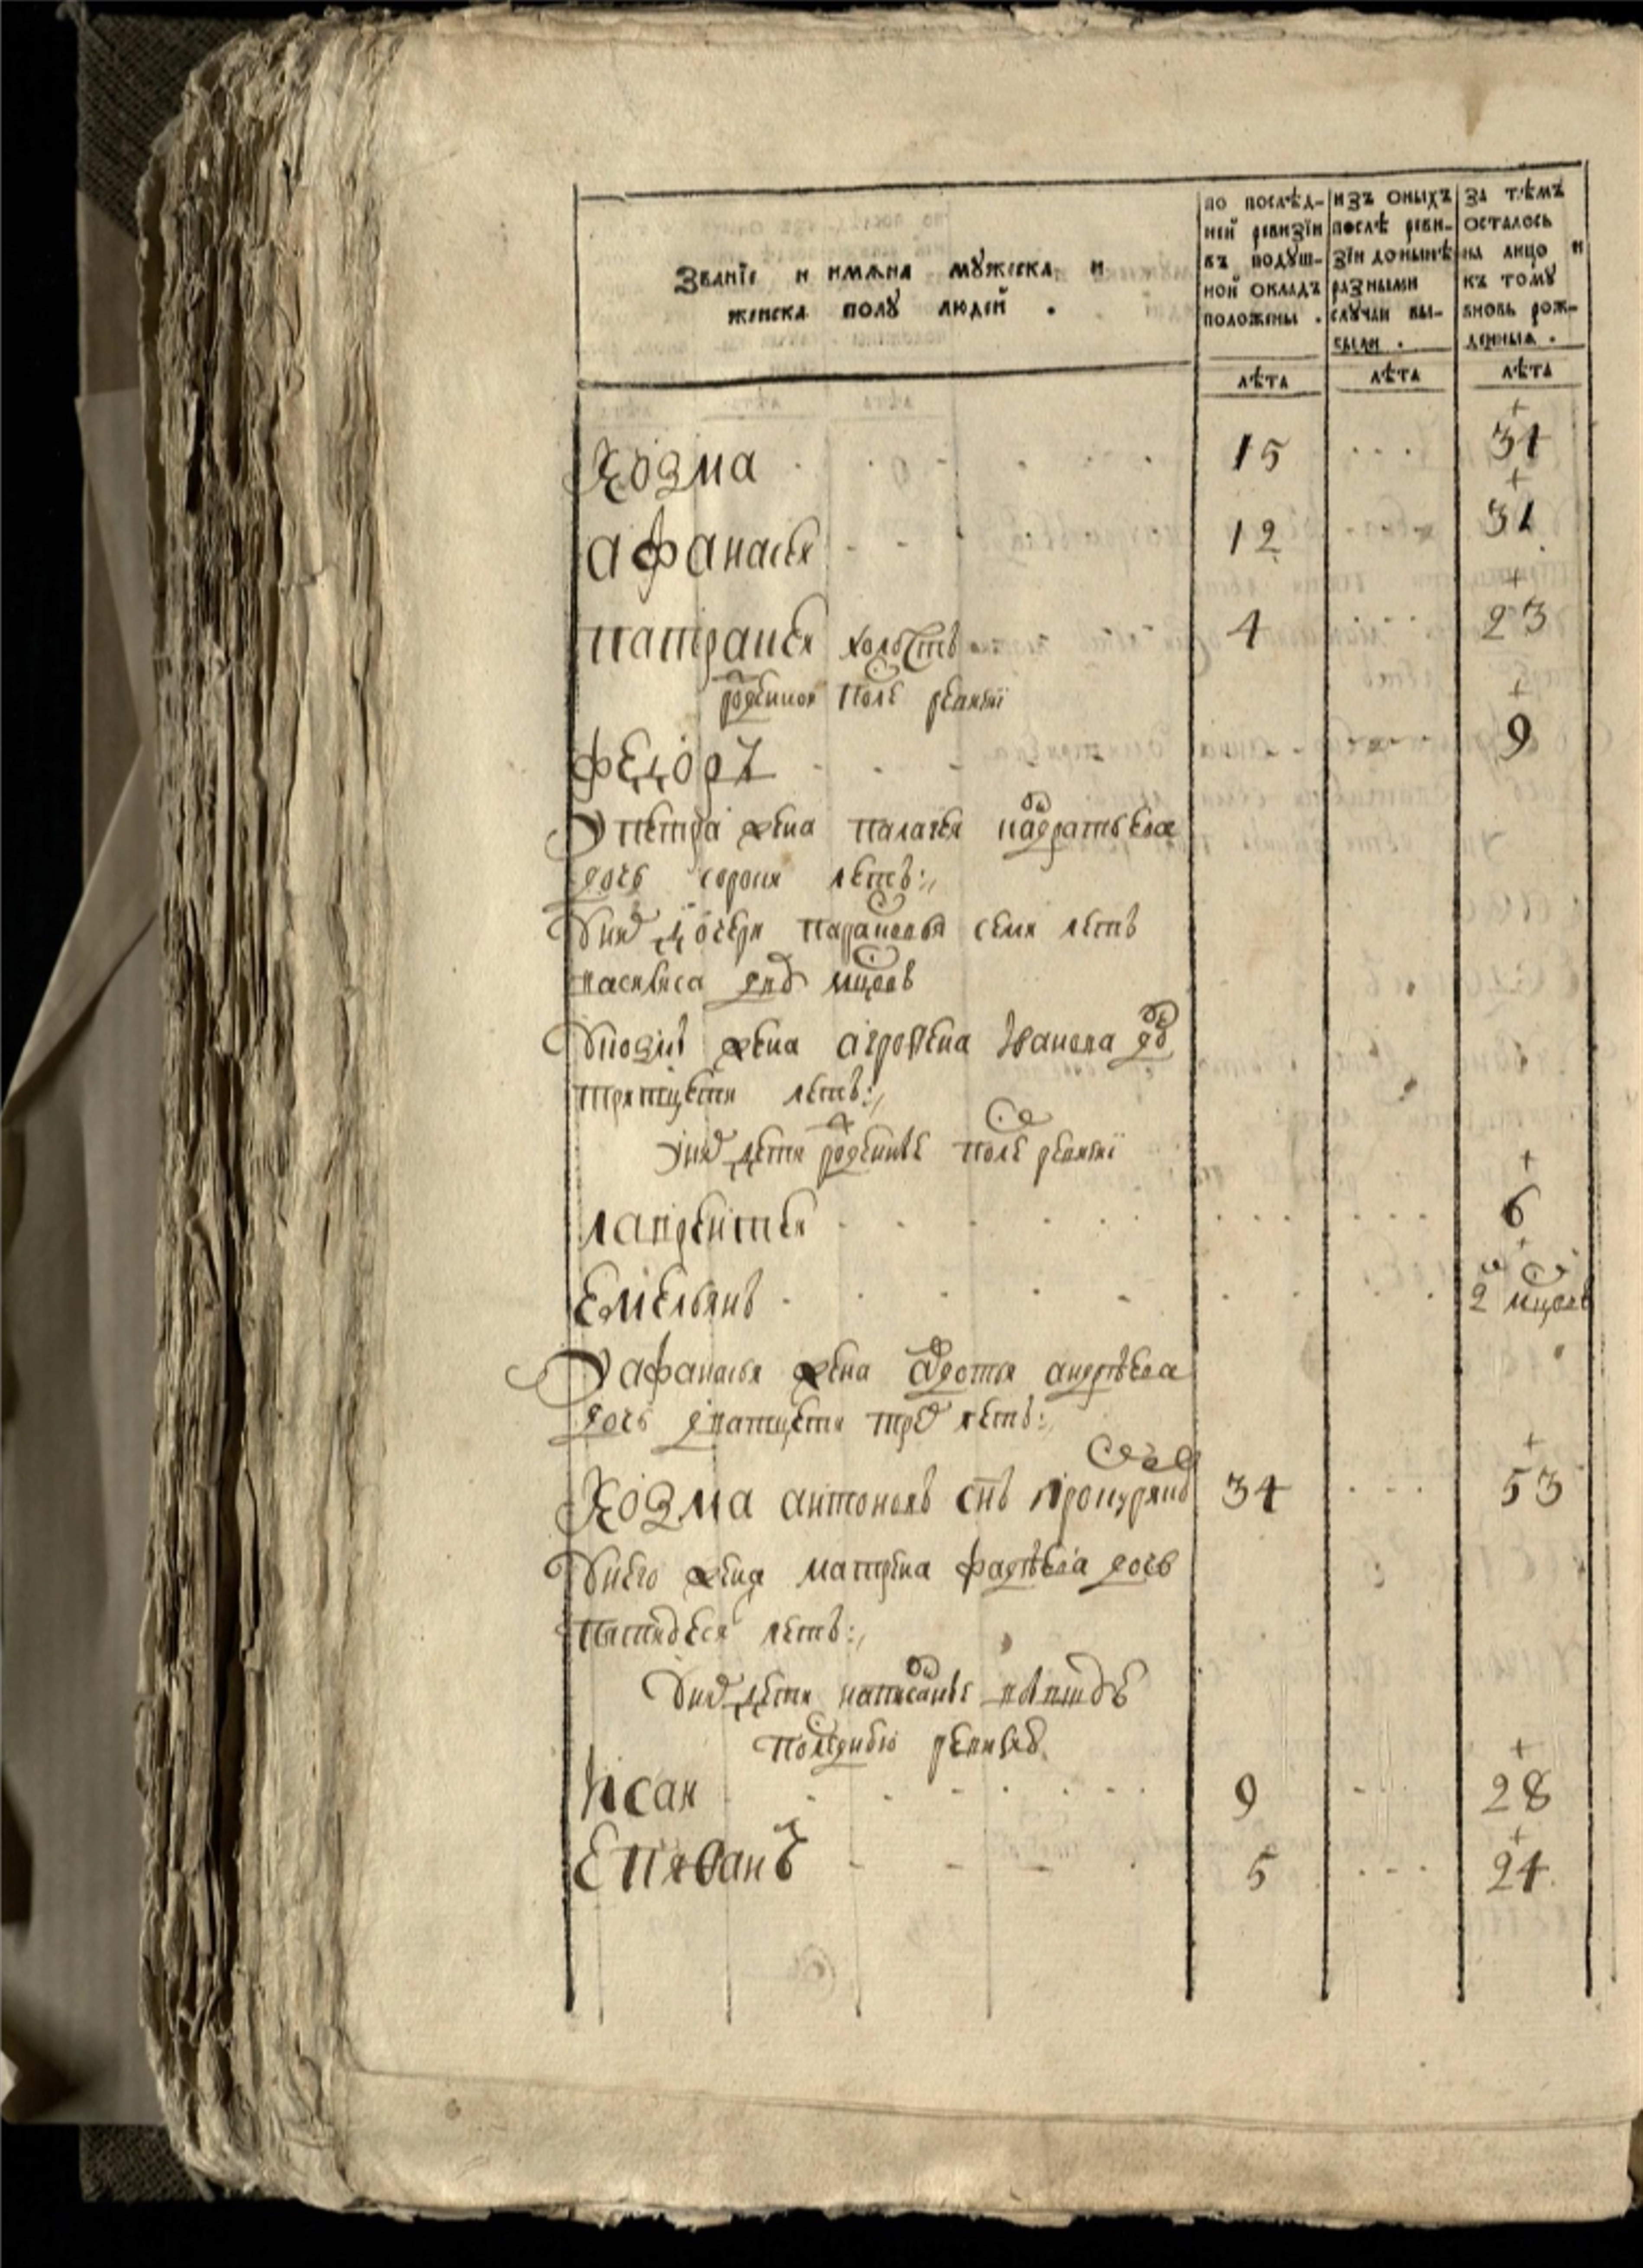 Званїе и имѧна мꙋжеска и
женска полꙋ людей .
по послѣд-
ней ревизїи
въ подꙋш-
ной окладъ
положены .
изъ оныхъ
послѣ реви-
зїи донынѣ
разными
слꙋчаи вы-
были .
за тѣмъ
осталось
на лицо и
къ томꙋ
вновь рож-
денныя .
лѣта лѣта лѣта
Козма 15 34
афанасеи 12 31
патракеи холостъ 4 23
рожденной после ревизиї
федоръ 9
У петра жена палагея
дочь сорока летъ
У них дочери парасковья семи летъ
василиса двух мцовъ
У козмы жена агрофена Иванова дч
тритцети летъ
У них дети рожденые после ревизиї
лаврентеи 6
Емельянъ 2 мцовъ
У афанасья жена авдотья андрѣева
дочь дватцети трех летъ
Козма антоновъ снъ 34 53
У него жена матрена фадѣева дочь
пятидесят летъ
У них дети написаные
последнюю ревизию
Исаи 9 28
Епиѳанъ 5 24